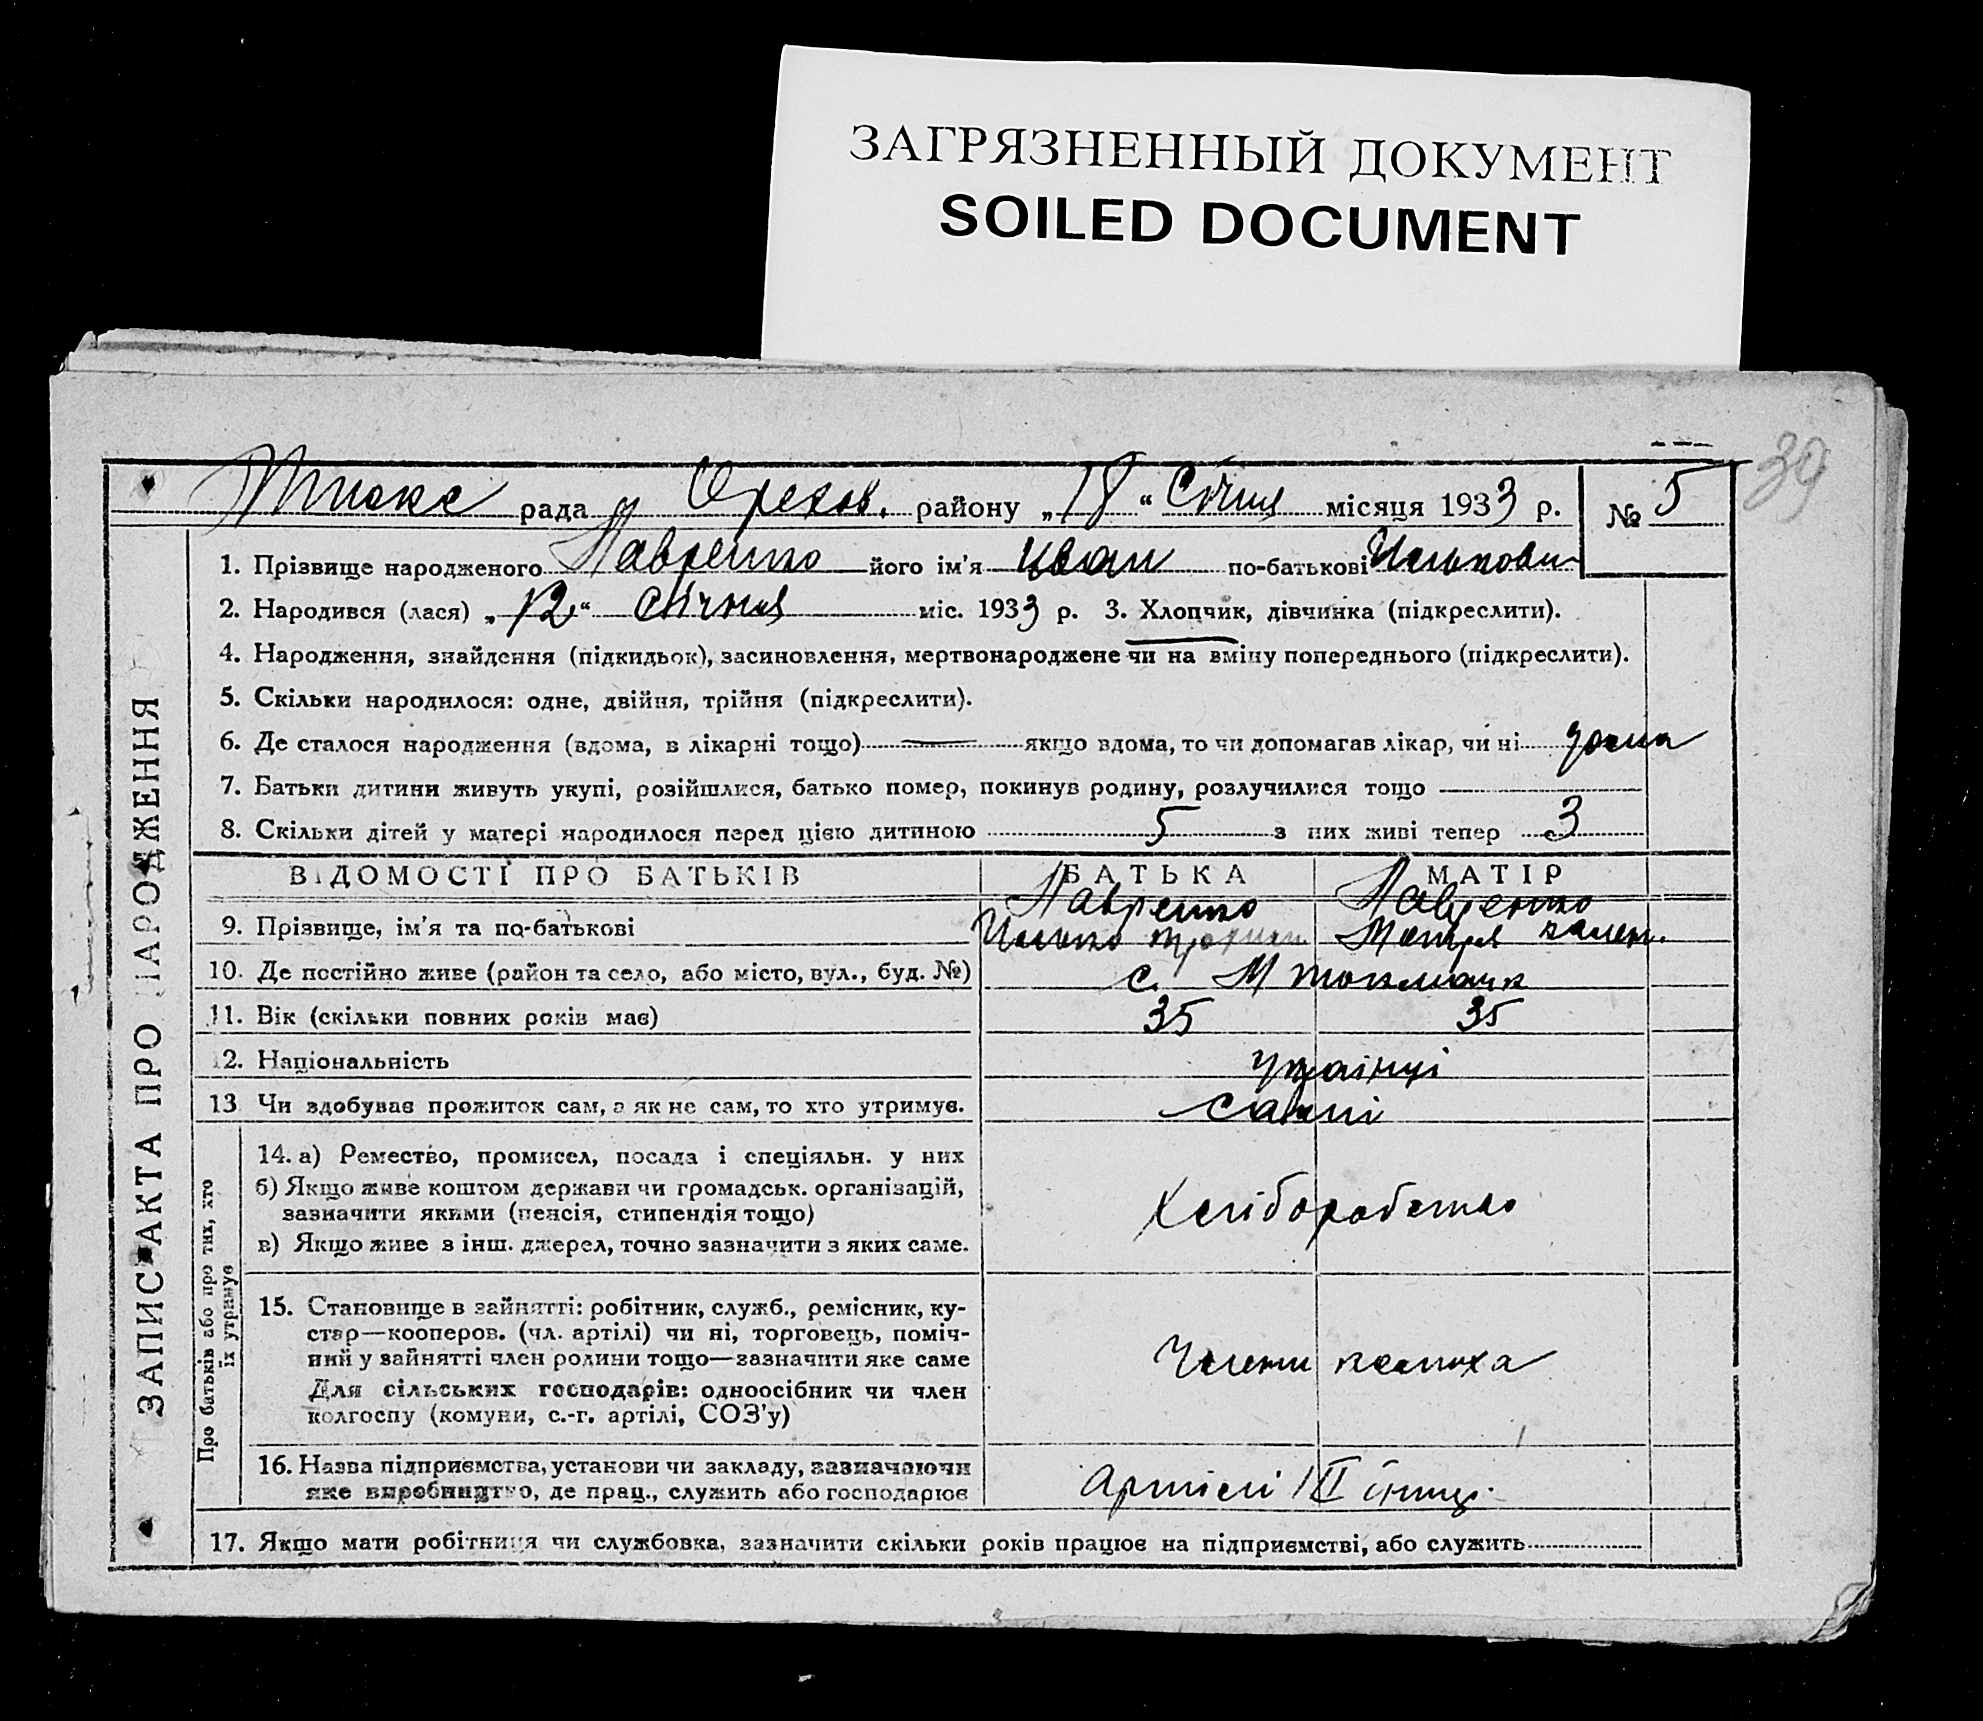 ЗАГРЯЗНЕННЫЙ ДОКУМЕНТ
SOILED DOCUMENT
39
рада у Орехов. району „18“ Січня місяця 1933 р. № 5
ЗАПИС АКТА ПРО НАРОДЖЕННЯ
1. Прізвище народженого Лавренко його ім'я Іван по-батькові
2. Народився (лася) „12“ січня міс. 1933 р. 3. Хлопчик, дівчинка (підкреслити).
4. Народження, знайдення (підкидьок), засиновлення, мертвонароджене чи на вміну попереднього (підкреслити).
5. Скільки народилося: одне, двійня, трійня (підкреслити).
6. Де сталося народження (вдома, в лікарні тощо) — якщо вдома, то чи допомагав лікар, чи ні
7. Батьки дитини живуть укупі, розійшлися, батько помер, покинув родину, розлучилися тощо
8. Скільки дітей у матері народилося перед цією дитиною 5 з них живі тепер 3
ВІДОМОСТІ ПРО БАТЬКІВ БАТЬКА МАТІР
Лавренко Лавренко
9. Прізвище, ім'я та по-батькові Илько
10. Де постійно живе (район та село, або місто, вул., буд. №) с. М Токмачк
11. Вік (скільки повних років має) 35 35
12. Національність українці
13 Чи здобуває прожиток сам, а як не сам, то хто утримує. самі
Про батьків або про тих, хто
їх утримує
14. а) Ремество, промисел, посада і спеціяльн. у них
б) Якщо живе коштом держави чи громадськ. організацій,
зазначити якими (пенсія, стипендія тощо)
в) Якщо живе з інш. джерел, точно зазначити з яких саме.
Хліборобство
15. Становище в зайнятті: робітник, служб., ремісник, ку-
стар—кооперов. (чл. артілі) чи ні, торговець, поміч-
ний у зайнятті член родини тощо—зазначити яке саме
Для сільських господарів: одноосібник чи член
колгоспу (комуни, с.-г. артілі, СОЗ'у)
Члени
16. Назва підприємства, установи чи закладу, зазначаючи
яке виробництво, де прац., служить або господарює
Артілі
17. Якщо мати робітниця чи службовка, зазначити скільки років працює на підприємстві, або служить